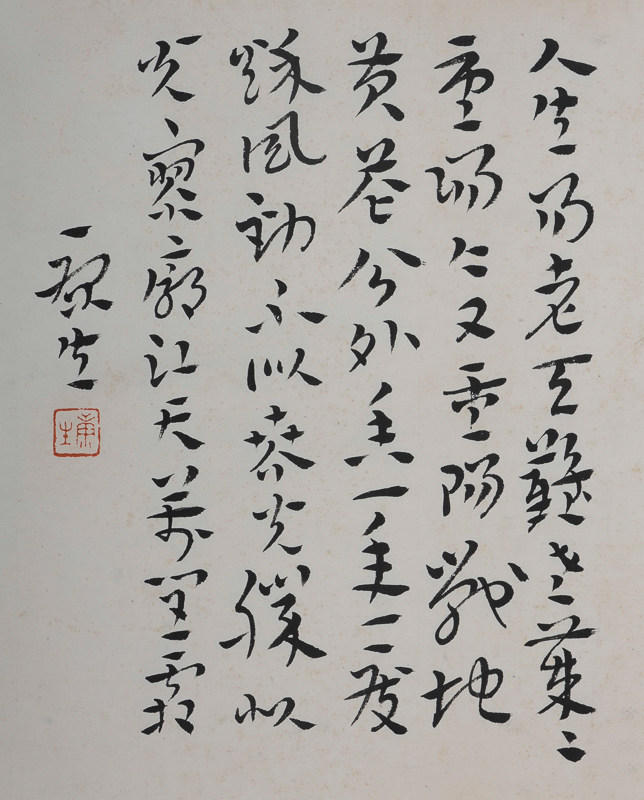 人生易老天難老歲〻
重陽今又重陽戰地
黄花分外香一年一度
秋風勁不似春光勝似
光寥廓江天萬里霜
康生
康生